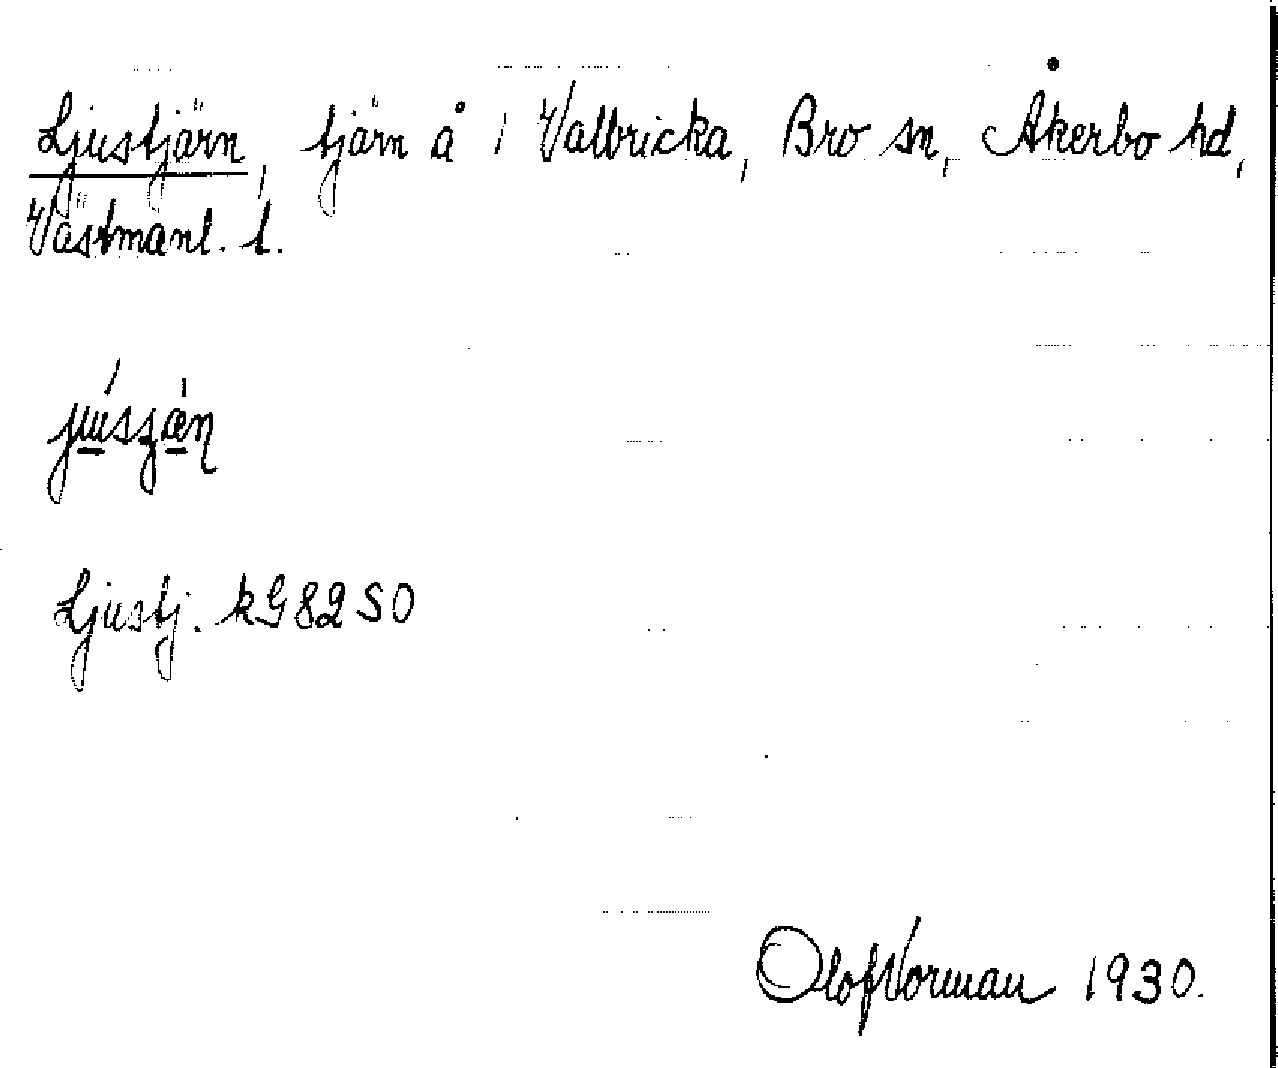 Ljustjärn, tjärn å 1 Valbricka, Bro sn, Åkerbo hd,
Västmanl. l.
Ljustj. kG82SO
Olof Norman 1930.